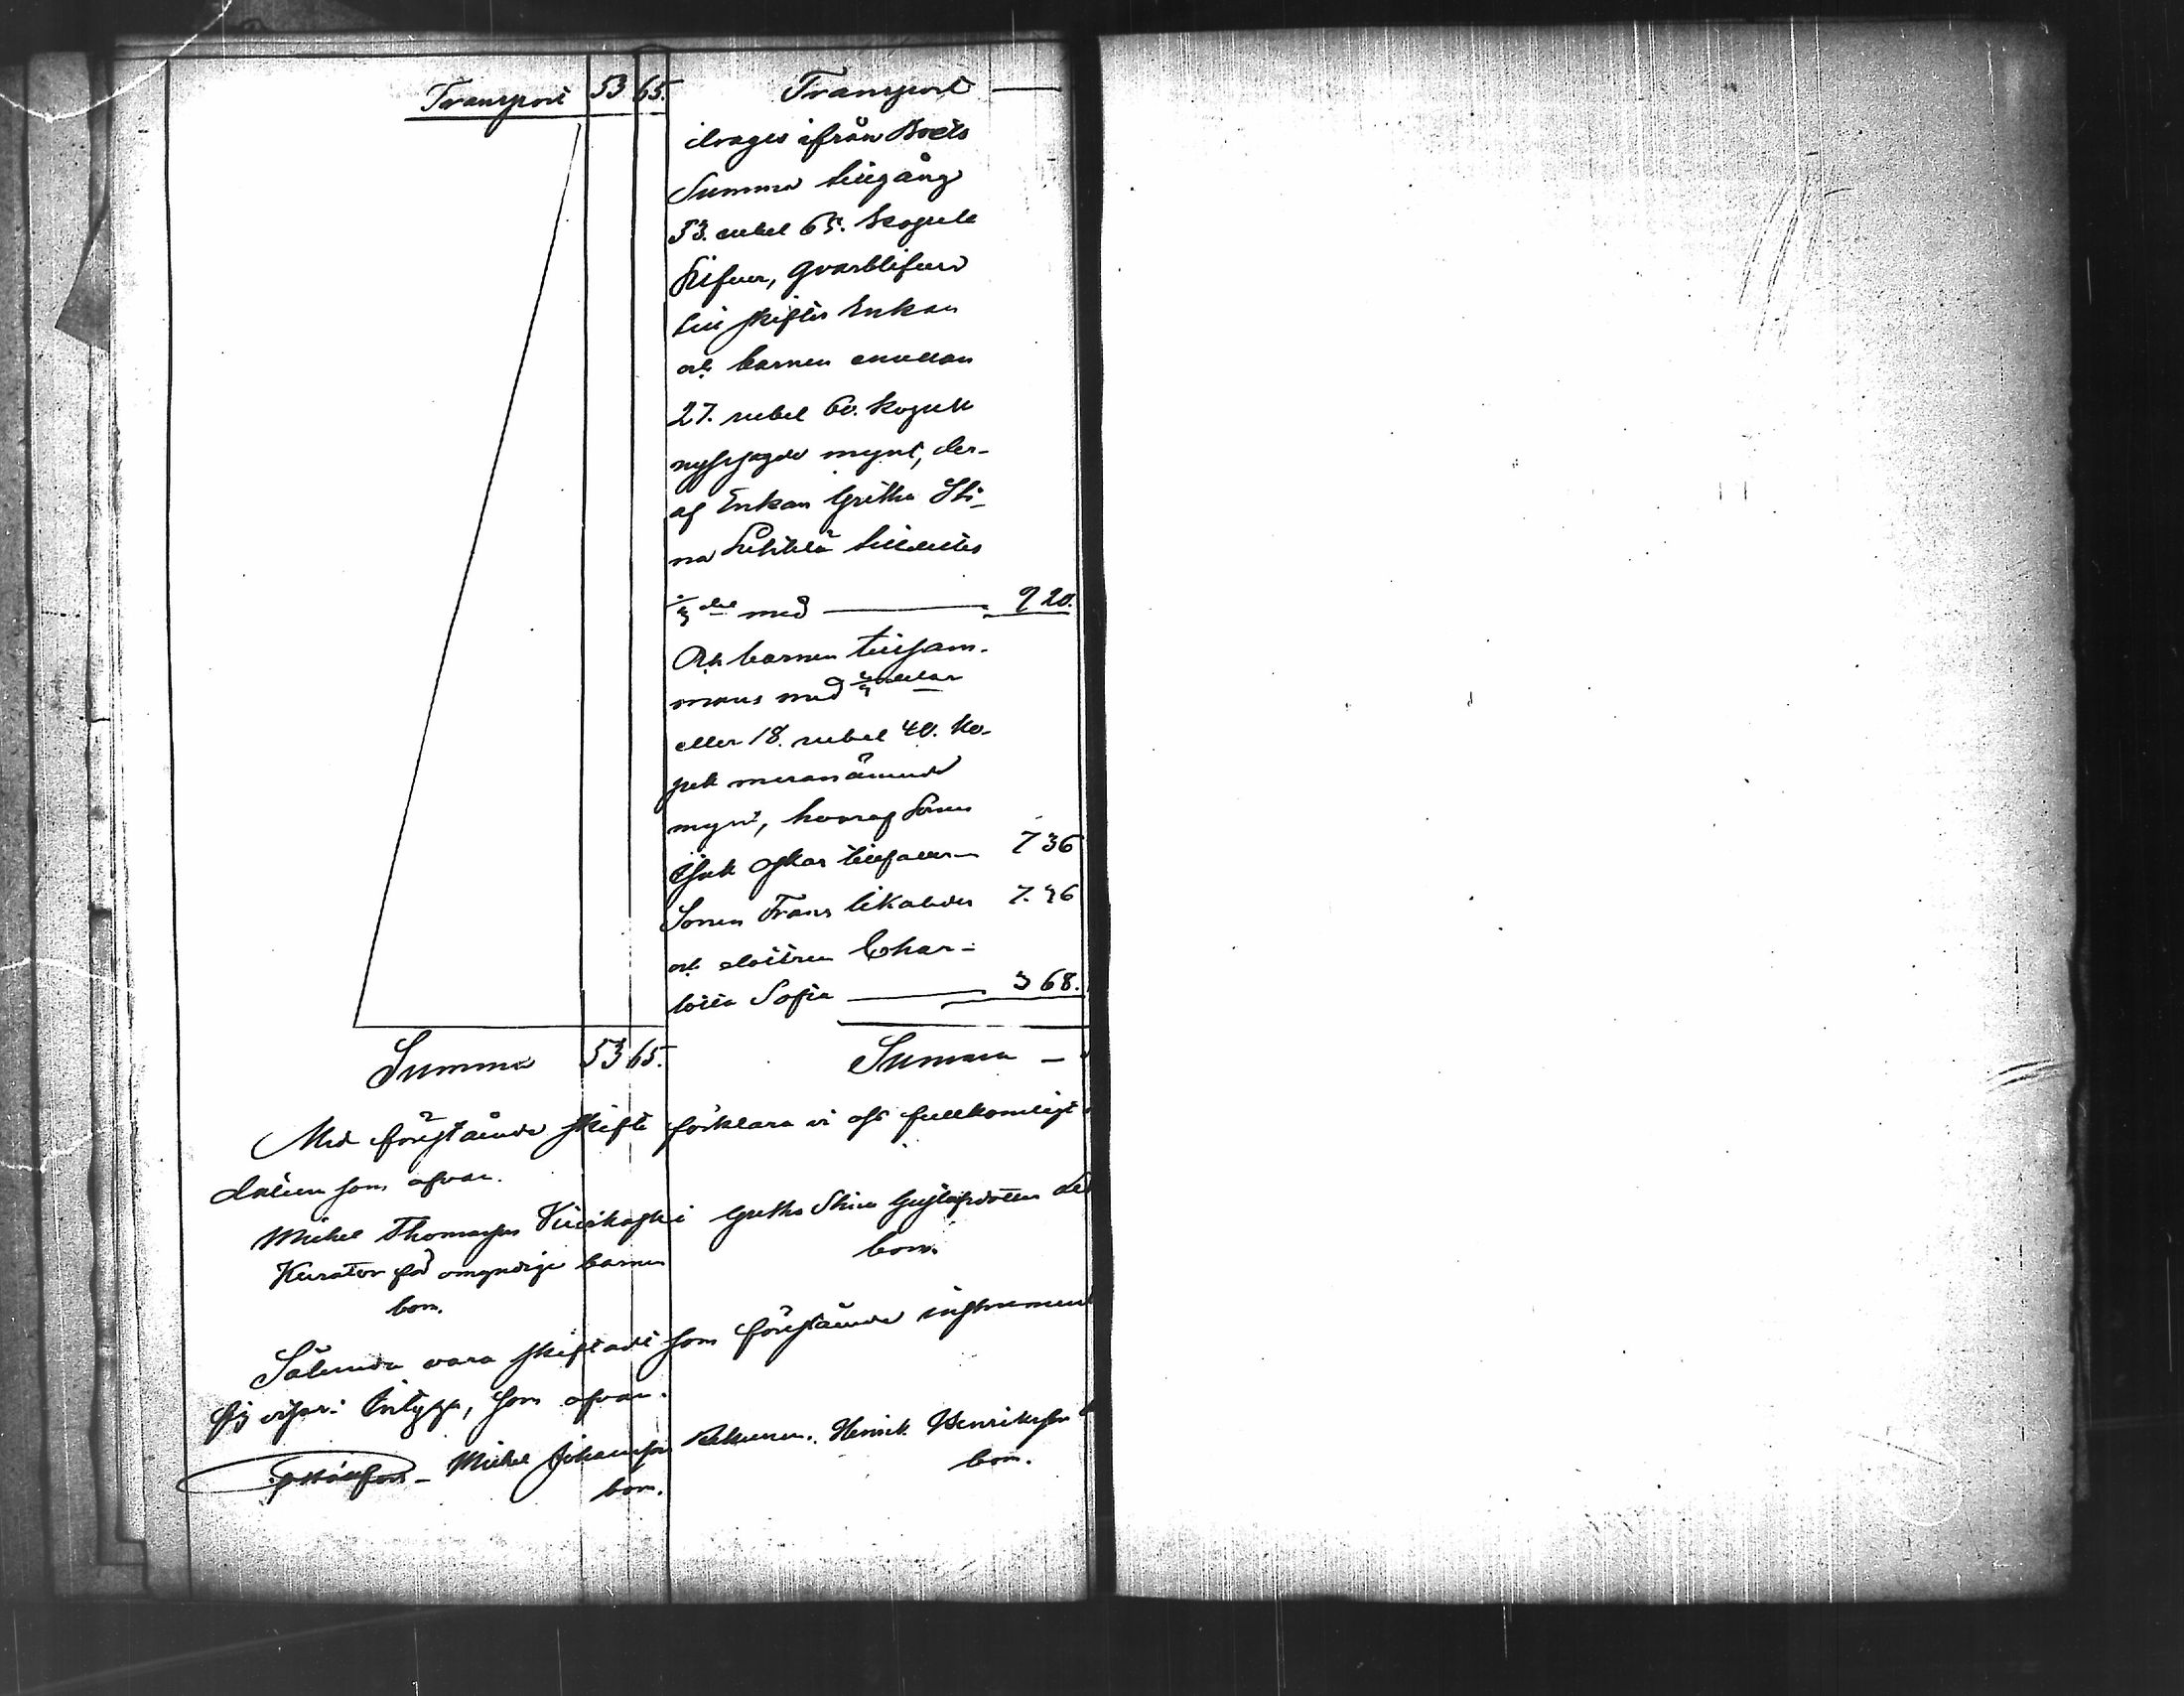 Transport 53 65.
Summa 53 65.
Transport
drages ifrån Boets
Summa tillgång
53. rubel 65. kopek
Silfver, qvarblifver
till skiftes Enkan
och barnen emellan
27. rubel 60. kopek
mynt, der-
af Enkan Gretha Sti-
na tilldeltes
1/3 del med 9 20.
Och barnen tillsam-
mans med 2/3 delar
eller 18. rubel 40. ko-
pek meranämnde
mynt, hvaraf Sonen
Isak Oskar tillfaller 7 36
Sonen Frans likaledes 7. 36
och dottren Char-
lotta Sofia 3 68.
Summa
Med förestående skifte förklara vi oss fullkomligt
datum som ofvan.
Michel Thomasson
Kurator för omyndige barnen
bom.
Gretha Stina Gustafsdotter
bom.
Sålunda vara skiftadt som förestående instrument
Intyga, som ofvan.
Michel Johansson
bom.
Henrik Henriksson
bom.